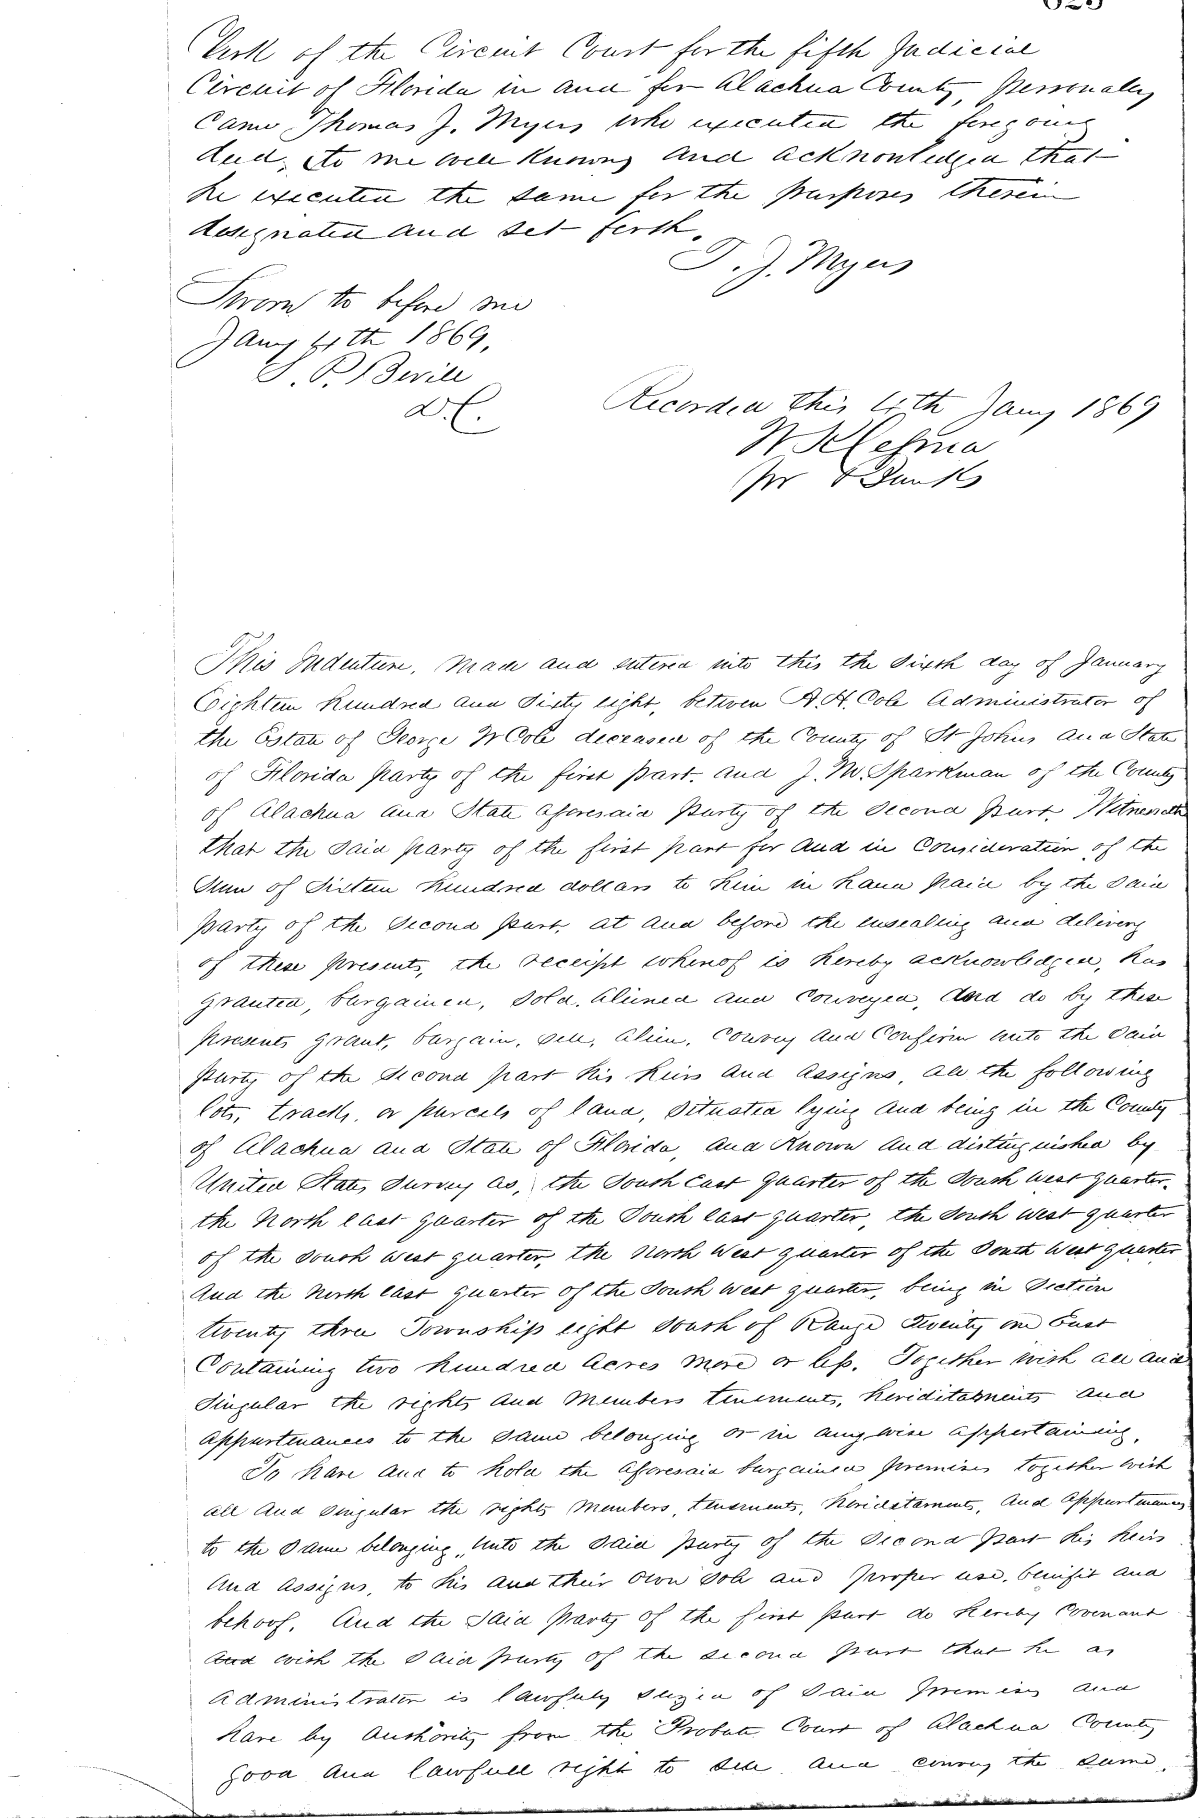 Clerk of the Circuit Court for the fifth Judicial
Circuit of Florida in and for Alachua County, personally
Came Thomas J. Myers who executed the foregoing
deed, to me well known and acknowledged that
he executed the same for the purposes therein
designated and set forth.
T. J. Myers
Sworn to before me
Jany 4th 1869,
S. P. Bevill
D.C.
Recorded this 4th Jany 1869
W K Cessna
pr Banks
This Indenture, Made and entered into this the Sixth day of January
Eighteen hundred and Sixty eight, between A. H. Cole Administrator of
the Estate of George W Cole deceased of the County of St Johns and State
of Florida party of the first part. and J. M. Sparkman of the County
of Alachua and State aforesaid party of the second part, Witnesseth
that the said party of the first part for and in Consideration of the
Sum of Sixteen hundred dollars to him in hand paid by the said
party of the second part, at and before the ensealing and delivery
of these presents, the receipt whereof is hereby acknowledged, has
granted, bargained, sold, aliened and Conveyed, And do by these
presents grant, bargain, sell, alien, Convey and Confirm unto the said
party of the second part his heirs and assigns, all the following
lots, tracts, or parcels of land, situated lying and being in the County
of Alachua and State of Florida, and Known and distinguished by
United States Survey as, the South East quarter of the South west quarter,
the North east quarter of the South east quarter, the South west quarter
of the South west quarter, the North West quarter of the South West quarter
And the North east quarter of the South west quarter, being in Section
twenty three Township eight South of Range Twenty one East
Containing two hundred Acres More or less. Together with all and
Singular the rights and Members tenements, hereditaments and
appurtenances to the same belonging or in any wise appertaining.
To have and to hold the aforesaid bargained premises together with
all and singular the rights Members, tenements, hereditaments, and appurtenances
to the same belonging, unto the said party of the second part his heirs
And assigns, to his and their own sole and proper use, benifit and
behoof. And the said party of the first part do hereby Covenant
and with the said party of the second part that he as
administrator is lawfuly seized of said premises and
have by Authority from the Probate Court of Alachua County
good and lawfull right to sell and convey the same,